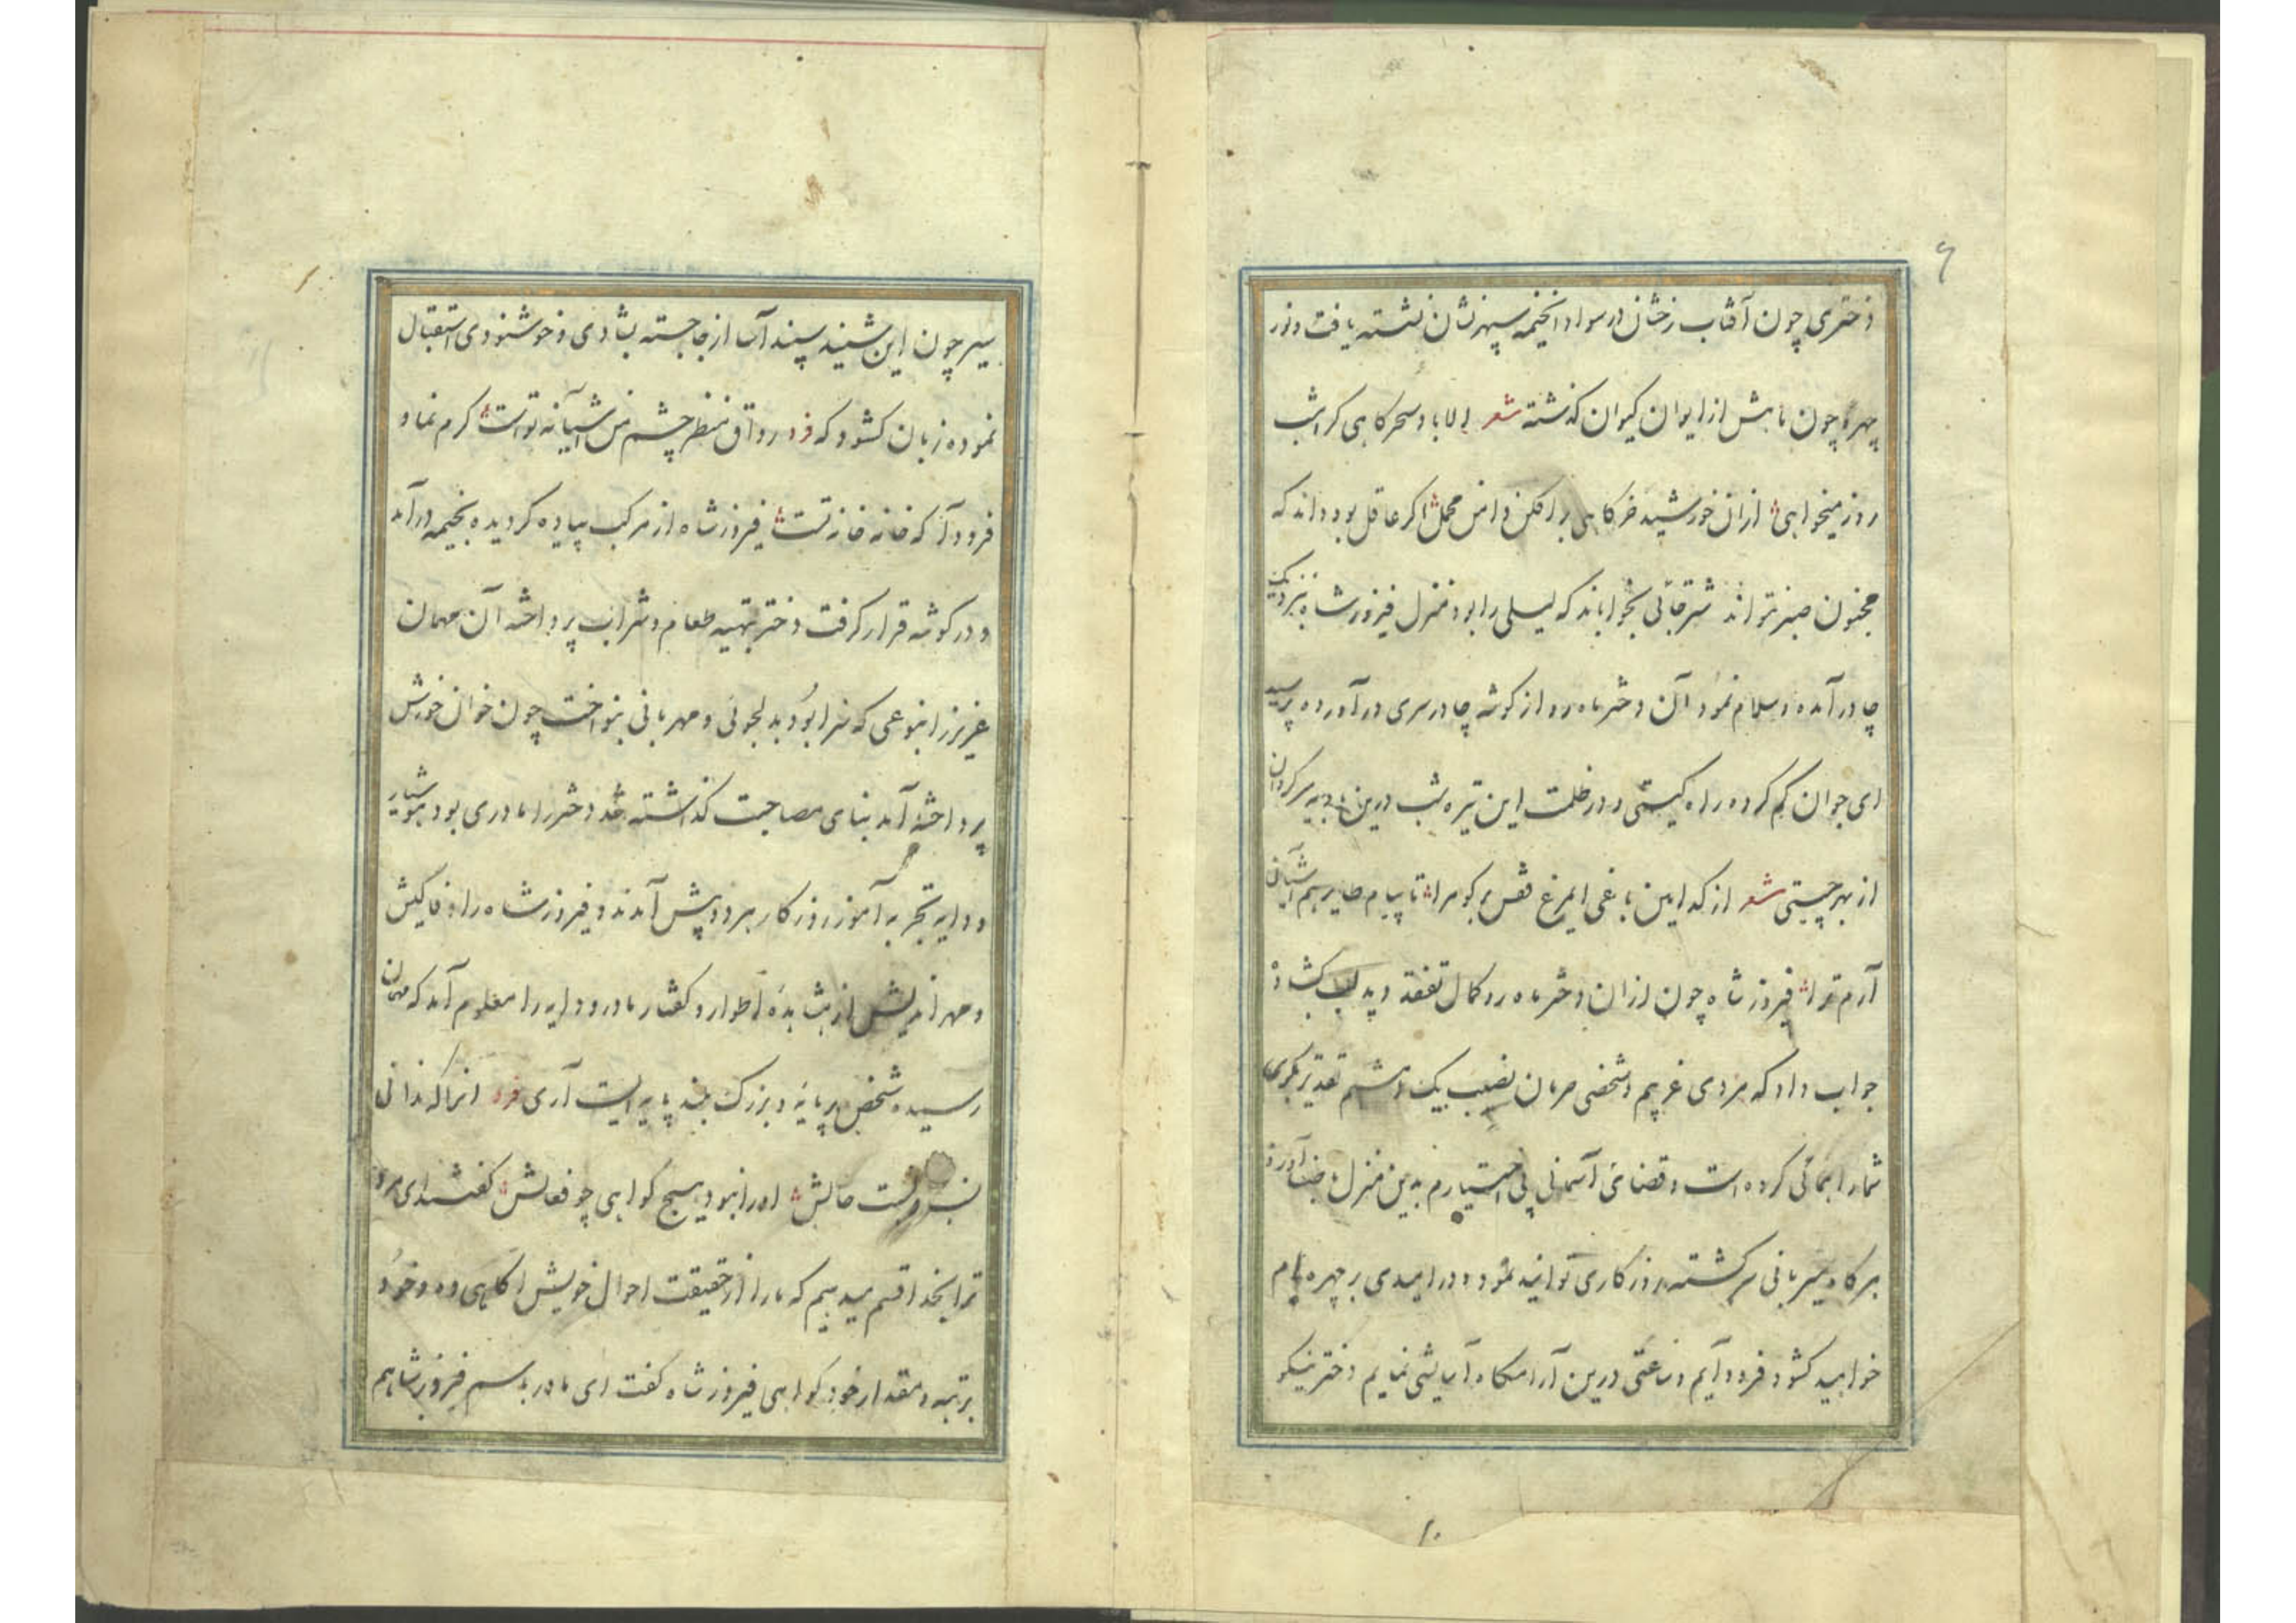 ۶
دختری چون آفتاب رخشان در سواد انخیمه سپهر نشان نشسته یافت و نور
چهره چون ماهش از ایوان کیوان گذشته شعر الا باد سحرگاهی گر این شب
روز میخواهی از ان خورشید خرگاهی برافکن دامن محمل اگر عاقل بود داند که
مجنون صبر نتواند شتر جائی بخواباند که لیلی را بود منزل فیروز شاه بنزدیک
چادر آمده و سلام نمود آن دختر ماه رو از گوشه چادر سری در آورده پرسید
ای جوان گم کرده راه کیستی و در ظلمت این تیره شب درین بادیه سرگردان
از بهر چیستی شعر از کدامین باغی ایمرغ قفس برگو مرا تا پیام طایر هم آشیان
آرم ترا فیروز شاه چون از ان دختر ماه رو کمال تفقد دید لب بگشاد
جواب داد که مردی غریبم و شخصی حرمان نصیب یک امشبم تقدیر بگری
شما راهنمائی کرده است و قضای آسمانی بی اختیارم بدین منزل آورد
هرگاه میزبانی سرگشته روزگاری توانید نمود و در امیدی بر چهره
خواهید گشود فرود آیم و ساعتی درین آرامگاه آسایشی نمایم دختر نیکو
سیر چون این بشنید سپند آسا از جا جسته بشادی و خوشنودی استقبال
نموده زبان گشود که فرد رواق منظر چشم من آشیانه تو است کرم نما و
فرود آ که خانه خانه تست فیروز شاه از مرکب پیاده گردیده بخیمه درآمد
و در گوشه قرار گرفت دختر بتهیه طعام و شراب پرداخته آن مهمان
عزیز را بنوعی که سزا بود بدلجوئی و مهربانی بنواخت چون خوان خورش
پرداخته آمد بنای مصاحبت گذاشته شد دختر را مادری بود هوشیار
و دایه تجربه آموز روزگار هر دو پیش آمدند و فیروز شاه را وفا کیش
و مهر اندیش از مشاهده اطوار و گفتار مادر و دایه را معلوم آمد که مهمان
رسیده شخص پر مایه و بزرگ بلند پایه ایست آری فرد انرا که ندانی
نسب و نسبت حالش او را نبود هیچ گواهی چو فعالش گفتند ای مرد
ترا بخدا قسم میدهیم که ما را از حقیقت احوال خویش آگاهی ده و خود
برتبه و مقدار خود گواهی فیروز شاه گفت ای مادر باسم فیروز شاهم